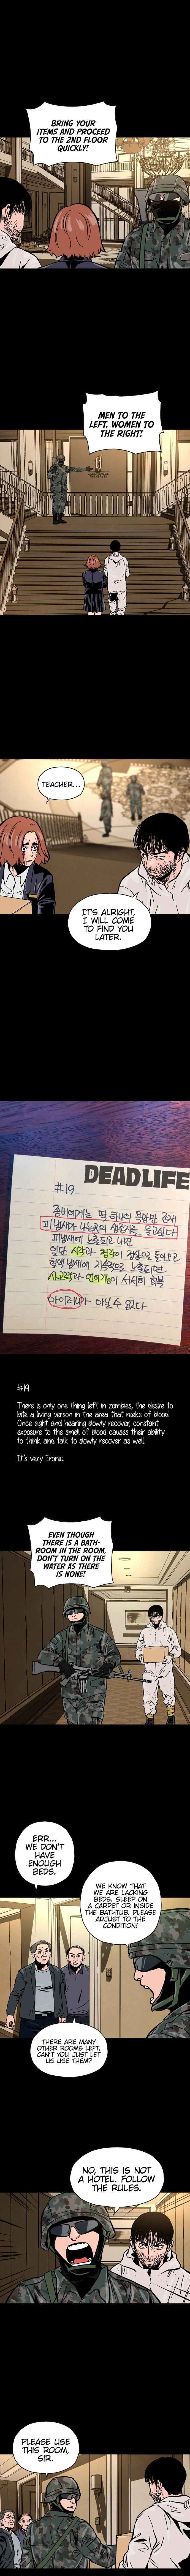 BRING YOUR
ITEMS AND PROCEED
TO THE 2ND FLOOR
QUICKLY!
MEN TO THE
LEFT, WOMEN TO
THE RIGHT!
TEACHER...
IT'S ALRIGHT,
I WILL COME
TO FIND YOU
LATER.
DEADLIFE
#19
좀비에게는 딱 하나의
피냄새가 나는 곳의 물고싶다
피냄새에 노출되고 나면
일단 시각과 청각이 돌아오고
노출되면
사고력과 언어능력이 서서히 회복
아이러니가 아닐 수 없다
#19
There is only one thing left in zombies, the desire to
bite a living person in the area that reeks of blood.
Once sight and hearing slowly recover, constant
exposure to the smell of blood causes their ability
to think and talk to slowly recover as well.
It's very Ironic.
EVEN THOUGH
THERE IS A BATH-
ROOM IN THE ROOM,
DON'T TURN ON THE
WATER AS THERE
IS NONE!
ERR...
WE DON'T
HAVE
ENOUGH
BEDS.
WE KNOW THAT
WE ARE LACKING
BEDS. SLEEP ON
A CARPET OR INSIDE
THE BATHTUB. PLEASE
ADJUST TO THE
CONDITION!
THERE ARE MANY
OTHER ROOMS LEFT,
CAN'T YOU JUST LET
US USE THEM?
NO, THIS IS NOT
A HOTEL. FOLLOW
THE RULES.
PLEASE USE
THIS ROOM,
SIR.